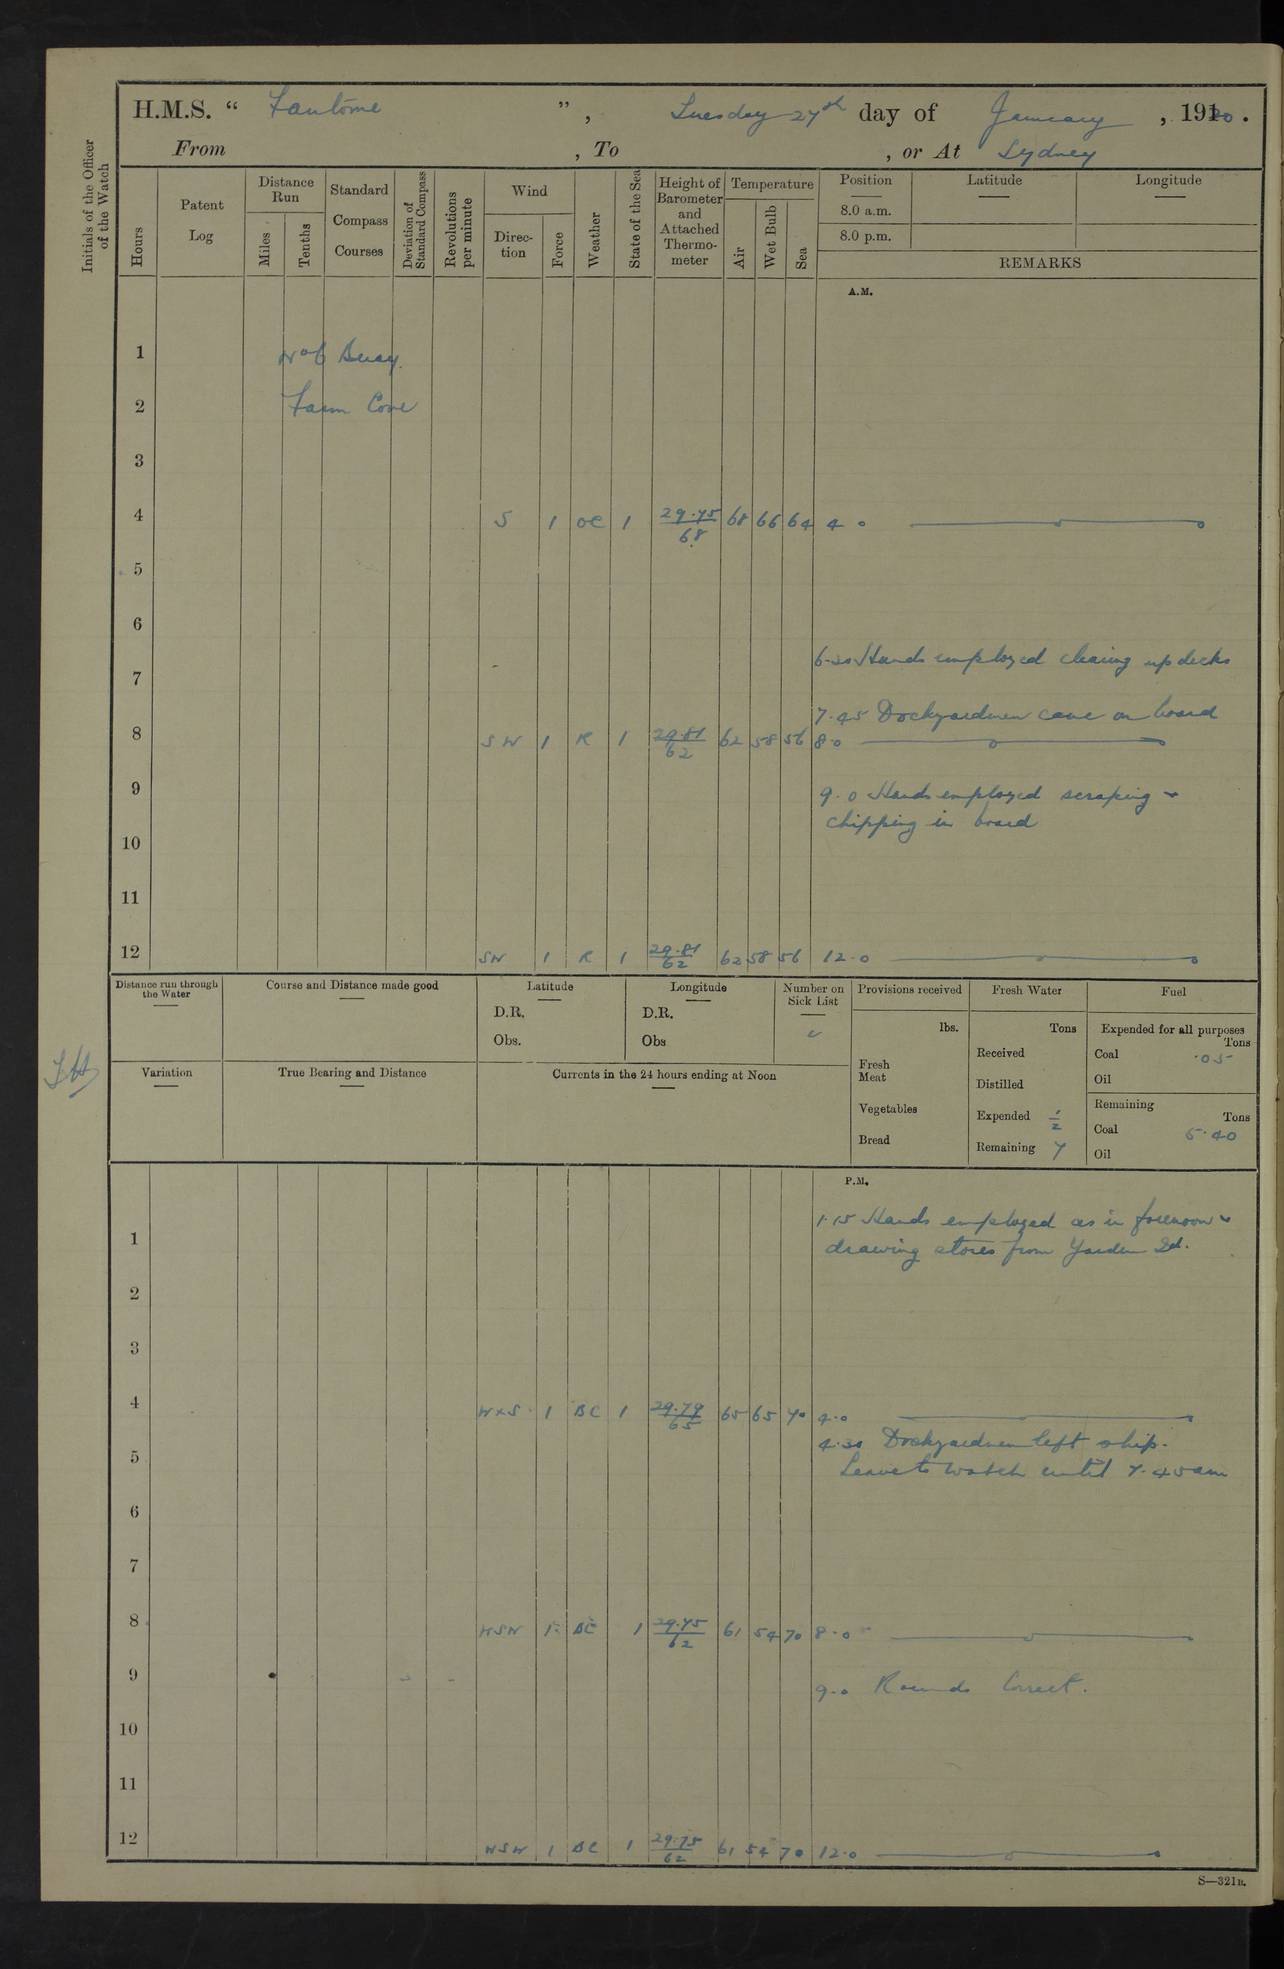 H.M.S. “ Fantôme ”, Tuesday 27th day of January, 1920.
From , To , or At Sydney
Initials of the Officer of the Watch
Hours
Patent Log
Distance Run
Miles
Tenths
Standard Compass Courses
Deviation of Standard Compass
Revolutions per minute
Wind
Direc-tion
Force
Weather
State of the Sea
Height of Barometer and Attached Thermo-meter
Temperature
Air
Wet Bulb
Sea
Position
Latitude
Longitude
8.0 a.m.
8.0 p.m.
REMARKS
A.M.
1 No 6 Buoy.
2 Farm Cove
3
4 S 1 OC 1 29.75/68 68 66 64 4.0
5
6
6.30 Hands employed clearing up decks
7
7.45 Dockyardmen came on board
8 SW 1 R 1 29.81/62 62 58 56 8.0
9 9.0 Hands employed scraping &
chipping in board
10
11
12 SW 1 R 1 29.81/62 62 58 56 12.0
Distance run through the Water
Course and Distance made good
Latitude
D.R.
Obs.
Longitude
D.R.
Obs
Number on Sick List
Provisions received
lbs.
Fresh Meat
Vegetables
Bread
Fresh Water
Tons
Received
Distilled
Expended 1/2
Remaining 7
Fuel
Expended for all purposes
Tons
Coal .05
Oil
Remaining
Tons
Coal 5.40
Oil
Variation
True Bearing and Distance
Currents in the 24 hours ending at Noon
P.M.
1.15 Hands employed as in forenoon &
1 drawing stores from Garden Id.
2
3
4 WxS 1 BC 1 29.79/65 65 65 70 4.0
4.30 Dockyardmen left ship.
5 Leave to watch until 7.45 am
6
7
8 WSW 1 BC 1 29.75/62 61 54 70 8.0
9 9.0 Rounds Correct.
10
11
12 WSW 1 BC 1 29.75/62 61 54 70 12.0
S—321B.